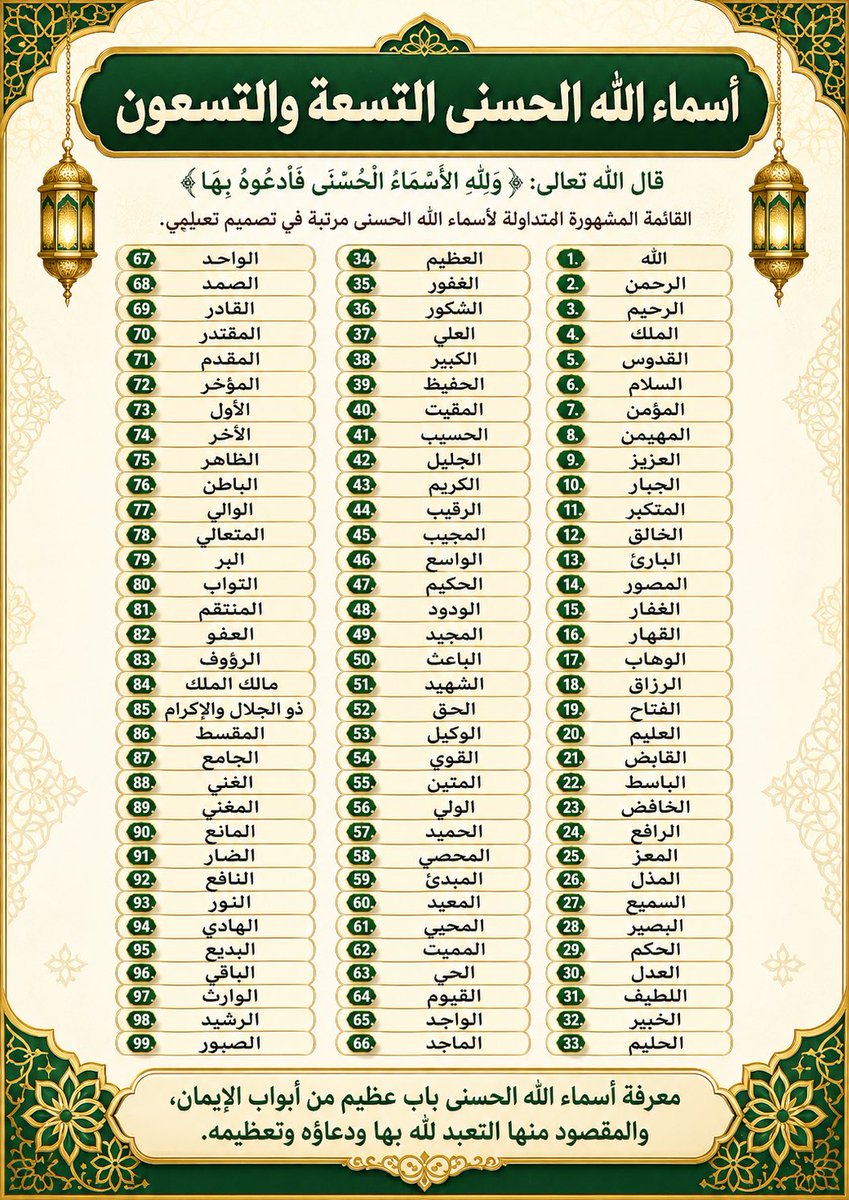 أسماء الله الحسنى التسعة والتسعون
قال الله تعالى: ﴿ وَلِلَّهِ الأَسْمَاءُ الْحُسْنَى فَادْعُوهُ بِهَا ﴾
القائمة المشهورة المتداولة لأسماء الله الحسنى مرتبة في تصميم تعليمي.
1. الله
2. الرحمن
3. الرحيم
4. الملك
5. القدوس
6. السلام
7. المؤمن
8. المهيمن
9. العزيز
10. الجبار
11. المتكبر
12. الخالق
13. البارئ
14. المصور
15. الغفار
16. القهار
17. الوهاب
18. الرزاق
19. الفتاح
20. العليم
21. القابض
22. الباسط
23. الخافض
24. الرافع
25. المعز
26. المذل
27. السميع
28. البصير
29. الحكم
30. العدل
31. اللطيف
32. الخبير
33. الحليم
34. العظيم
35. الغفور
36. الشكور
37. العلي
38. الكبير
39. الحفيظ
40. المقيت
41. الحسيب
42. الجليل
43. الكريم
44. الرقيب
45. المجيب
46. الواسع
47. الحكيم
48. الودود
49. المجيد
50. الباعث
51. الشهيد
52. الحق
53. الوكيل
54. القوي
55. المتين
56. الولي
57. الحميد
58. المحصي
59. المبدئ
60. المعيد
61. المحيي
62. المميت
63. الحي
64. القيوم
65. الواجد
66. الماجد
67. الواحد
68. الصمد
69. القادر
70. المقتدر
71. المقدم
72. المؤخر
73. الأول
74. الأخر
75. الظاهر
76. الباطن
77. الوالي
78. المتعالي
79. البر
80. التواب
81. المنتقم
82. العفو
83. الرؤوف
84. مالك الملك
85. ذو الجلال والإكرام
86. المقسط
87. الجامع
88. الغني
89. المغني
90. المانع
91. الضار
92. النافع
93. النور
94. الهادي
95. البديع
96. الباقي
97. الوارث
98. الرشيد
99. الصبور
معرفة أسماء الله الحسنى باب عظيم من أبواب الإيمان،
والمقصود منها التعبد لله بها ودعاؤه وتعظيمه.